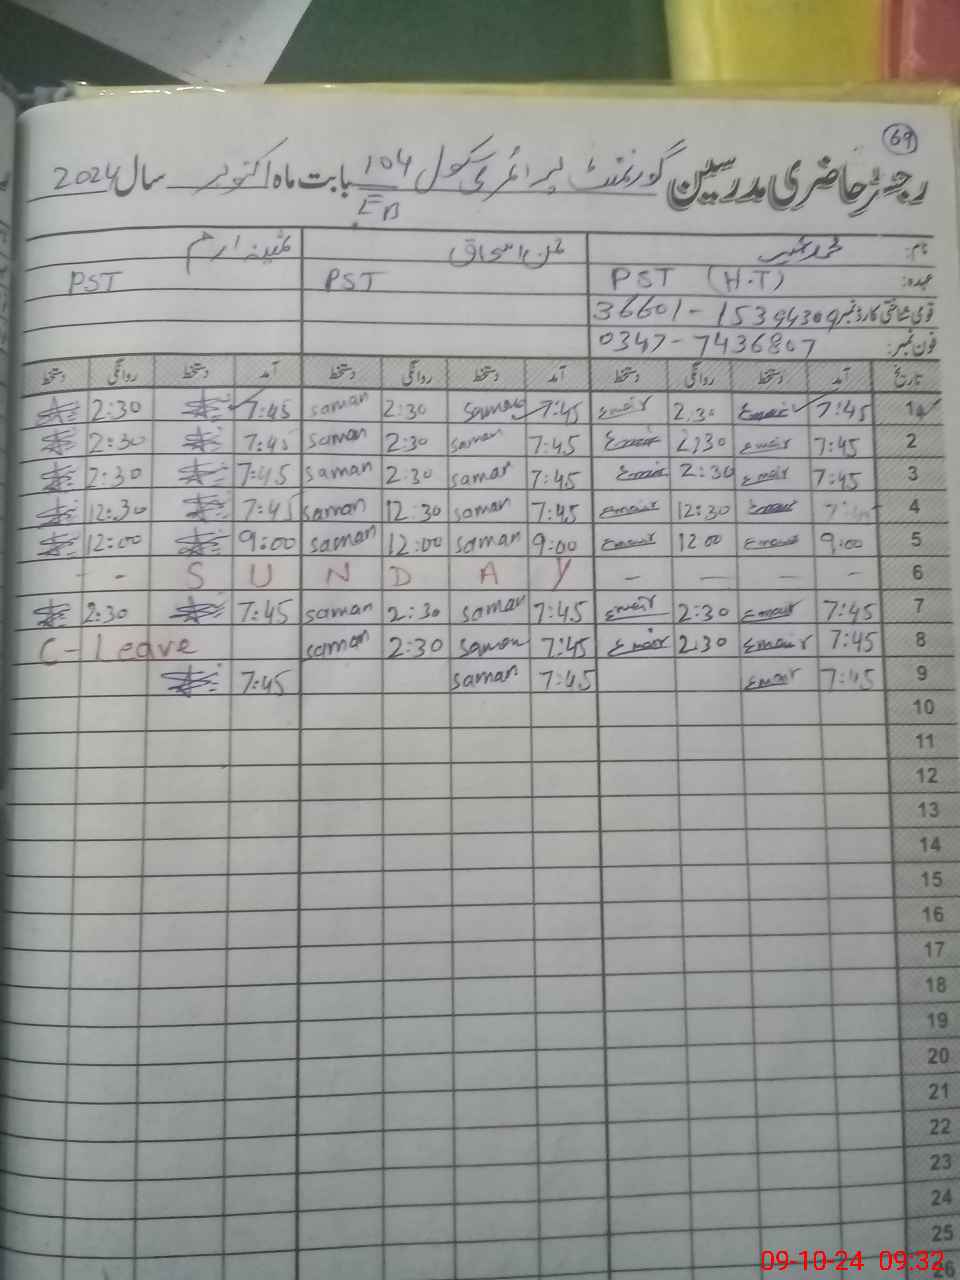 69
رجسٹر حاضری مدرسین گورنمنٹ پرائمری سکول 104 EB بابت ماہ اکتوبر سال 2024
نام: محمد عمیر ثمن اسحاق ثمینہ ارم
عہدہ: PST (H.T) PST PST
قومی شناختی کارڈ نمبر 36601-15394309
فون نمبر: 0347-7436807
تاریخ آمد دستخط روانگی دستخط آمد دستخط روانگی دستخط آمد دستخط روانگی دستخط
1 7:45 Emair 2:30 Emair 7:45 saman 2:30 saman 7:45 2:30
2 7:45 Emair 2:30 Emair 7:45 saman 2:30 saman 7:45 2:30
3 7:45 Emair 2:30 Emair 7:45 saman 2:30 saman 7:45 2:30
4 7:45 Emair 12:30 Emair 7:45 saman 12:30 saman 7:45 12:30
5 9:00 Emair 12:00 Emair 9:00 saman 12:00 saman 9:00 12:00
6 - - S U N D A Y - - - -
7 7:45 Emair 2:30 Emair 7:45 saman 2:30 saman 7:45 2:30
8 7:45 Emair 2:30 Emair 7:45 saman 2:30 saman C-Leave
9 7:45 Emair 7:45 saman 7:45
10
11
12
13
14
15
16
17
18
19
20
21
22
23
24
25
26
09-10-24 09:32